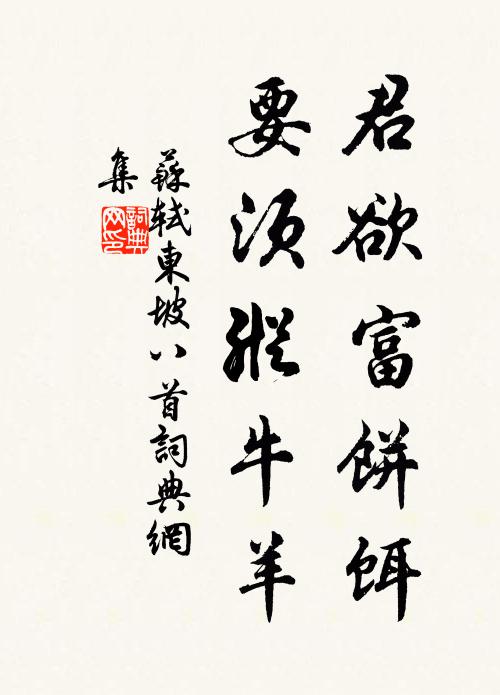 君欲富餅餌
要須縱牛羊
蘇軾東坡八首詞典網
集
詞典網印